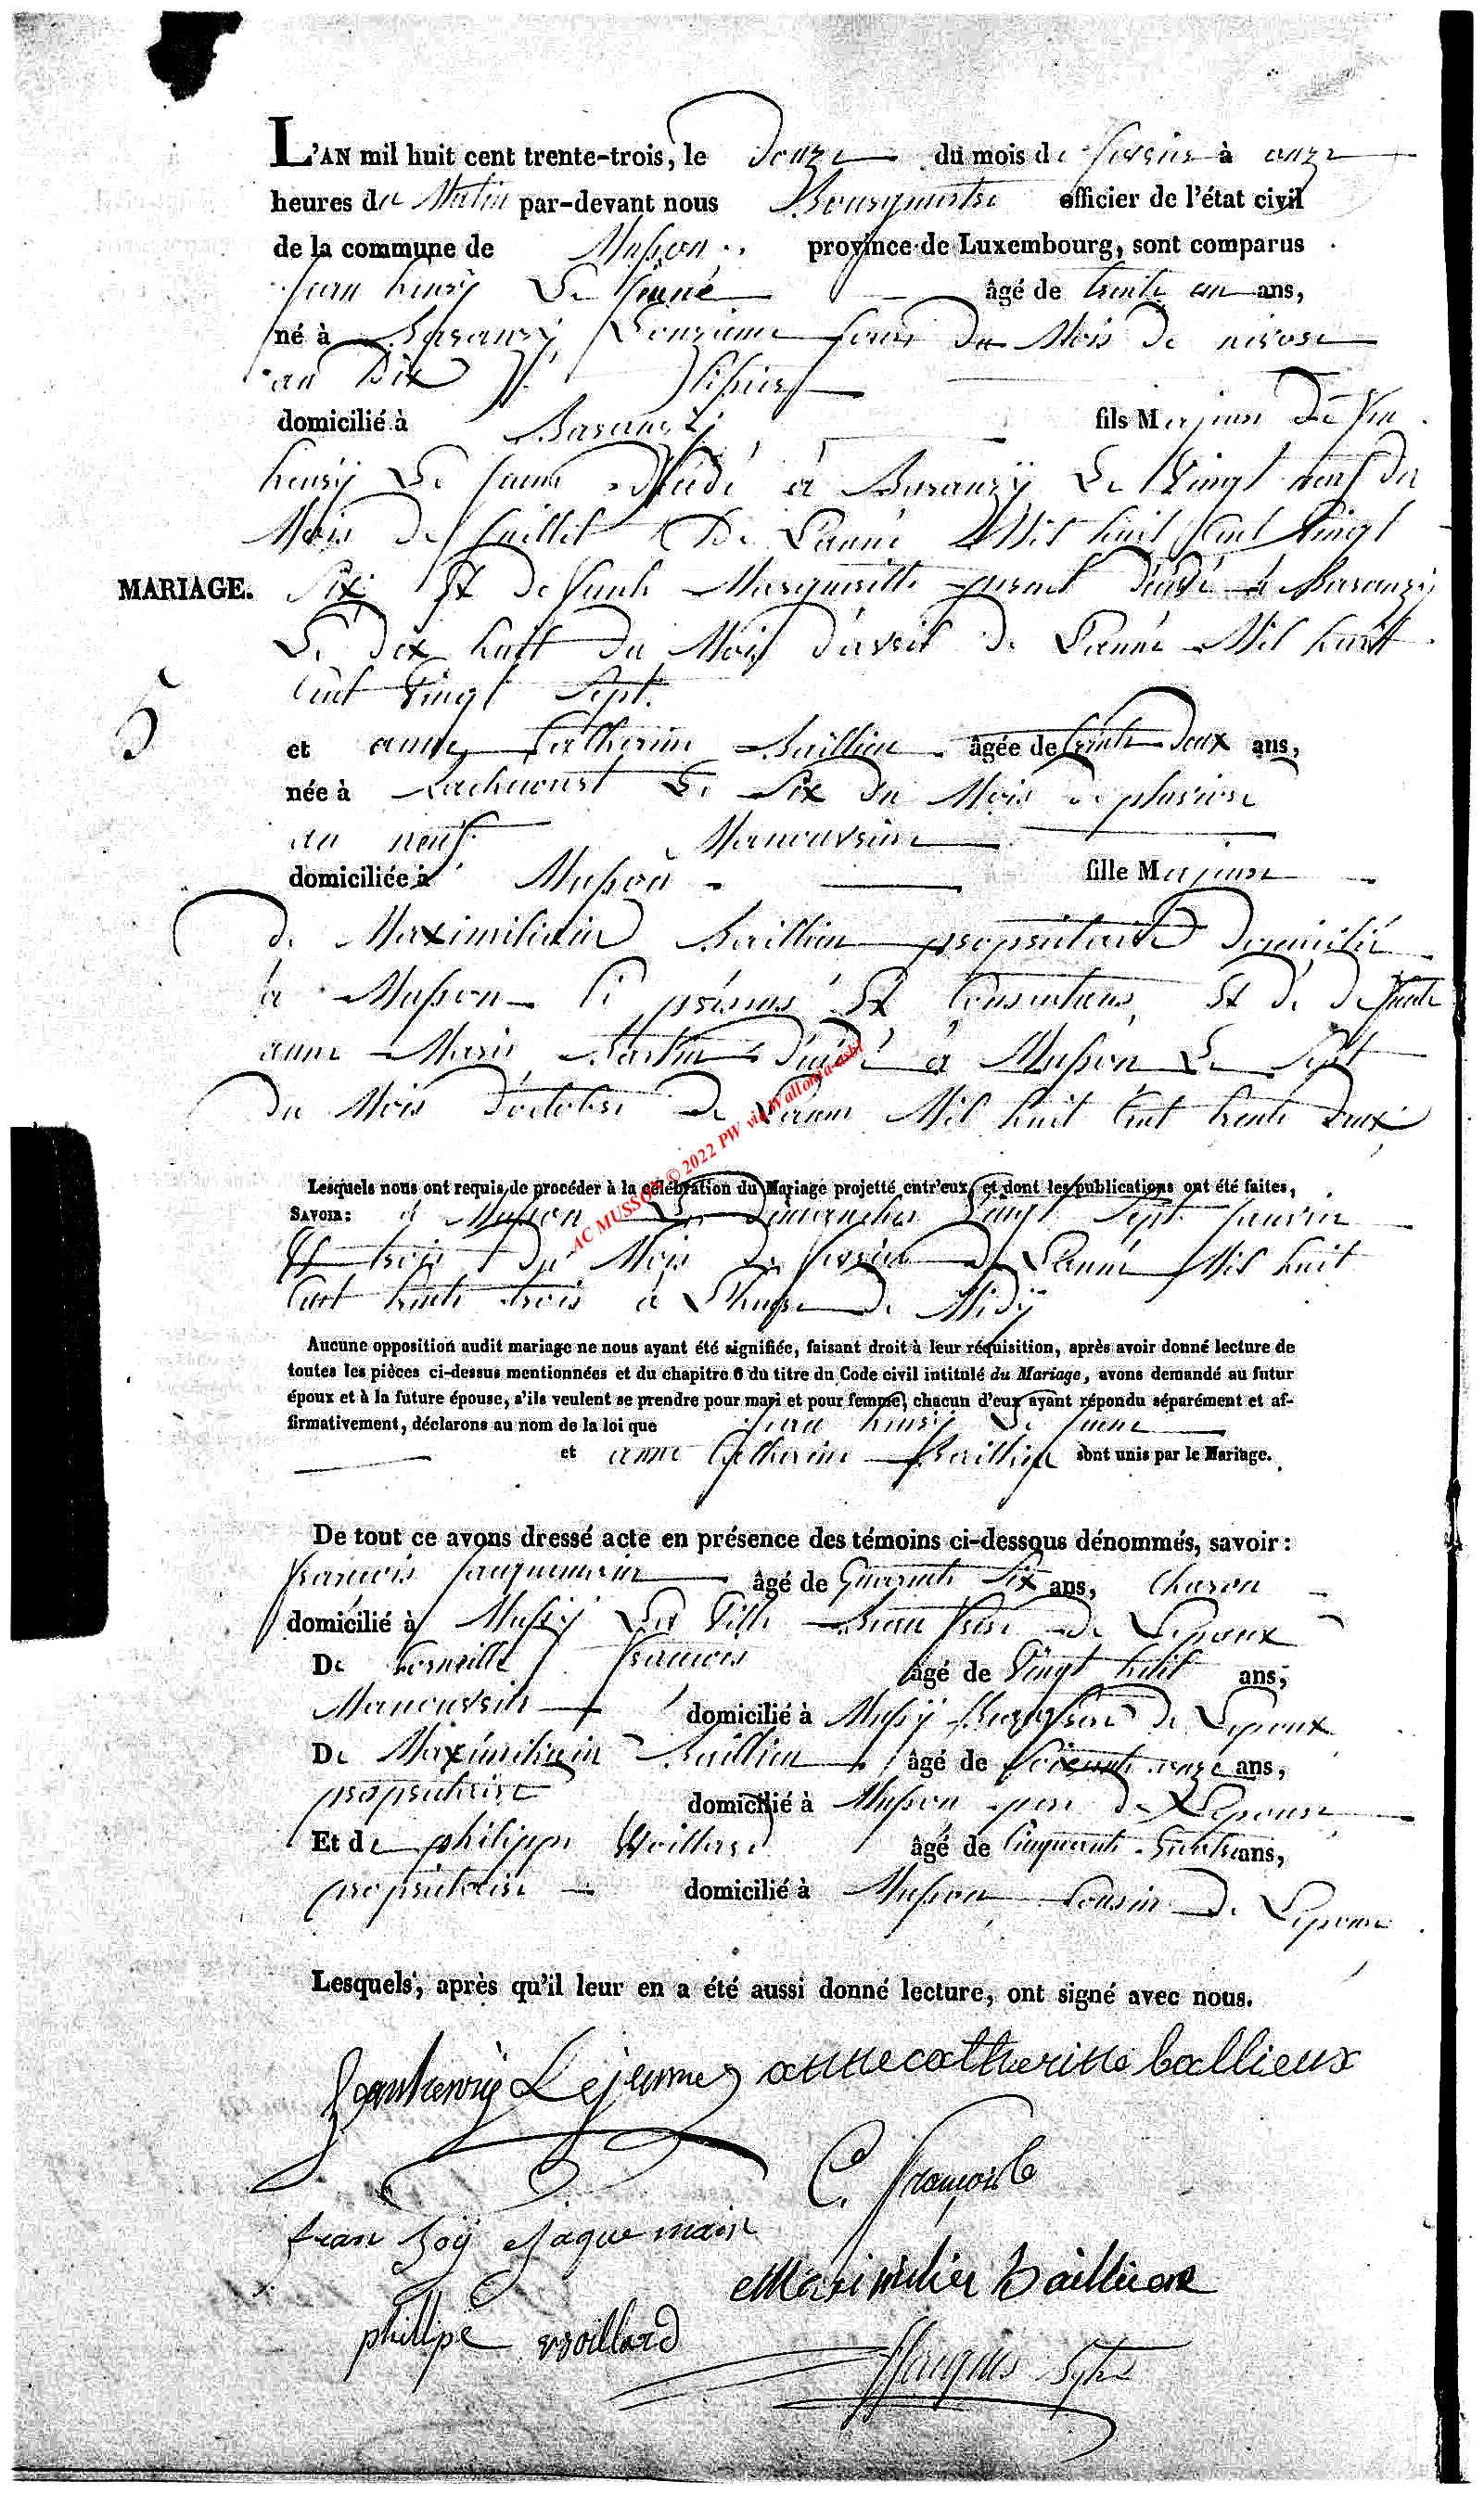 L'AN mil huit cent trente-trois, le Douze du mois de fevrier à onze
heures du Matin par-devant nous Bourgmestre officier de l'état civil
de la commune de Musson province de Luxembourg, sont comparus
Jean henry Le Jeune âgé de trente un ans,
né à Baranzÿ Jour Du Mois De nivose
an Dix
domicilié à Baranzÿ fils Majeur De feu
henrÿ Le Jeune à Baranzÿ Le Vingt neuf du
Mois De Juillet De L'anné Mil huit Cent Vingt
MARIAGE. Six Et De funte Margueritte à Baranzÿ
Le dix huit Du Mois d'avril de L'anné Mil huitt
5 Cent Vingt Sept.
et anne Catherine Baillieu âgée de trente Deux ans,
née à Rachecourt Le Six Du Mois de pluviose
an neuf Manouvrière
domiciliée à Musson fille Majeure
de Maximilien Baillieu propriétaire Domicilié
à Musson Ci présent Et Consentant, Et De De funte
anne Marie à Musson Le Sept
Du Mois d'octobre De L'anné Mil huit Cent trente Deux
AC MUSSON © 2022 PW via Wallonia-asbl
Lesquels nous ont requis de procéder à la célébration du Mariage projetté entr'eux, et dont les publications ont été faites,
SAVOIR: à Musson Les Dimanches Vingt Sept Janvier
Et trois Du Mois De fevrier De L'anné Mil huit
Cent trente trois à L'heure De Midÿ
Aucune opposition audit mariage ne nous ayant été signifiée, faisant droit à leur réquisition, après avoir donné lecture de
toutes les pièces ci-dessus mentionnées et du chapitre 6 du titre du Code civil intitulé du Mariage, avons demandé au futur
époux et à la future épouse, s'ils veulent se prendre pour mari et pour femme; chacun d'eux ayant répondu séparément et af-
firmativement, déclarons au nom de la loi que Jean henrÿ Le Jeune
et anne Catherine Baillieu sont unis par le Mariage.
De tout ce avons dressé acte en présence des témoins ci-dessous dénommés, savoir:
françois Jacquemain âgé de Quarante Six ans, Charon
domicilié à Mussÿ La Ville Beau frère de L'epoux
De Corneille francois âgé de Vingt huit ans,
Manouvrier domicilié à Mussÿ Beau frère de L'epoux
De Maximilien Baillieu âgé de Soixante onze ans,
propriétaire domicilié à Musson père de L'epouse
Et de philippe Woillard âgé de Cinquante Quatre ans,
propriétaire domicilié à Musson Cousin De L'epouse
Lesquels, après qu'il leur en a été aussi donné lecture, ont signé avec nous.
Jeanhenrÿ Lejeune annecatherine ballieux
C. françois
fran soÿ Jaque main
Maximilien Baillieux
phillipe woillard